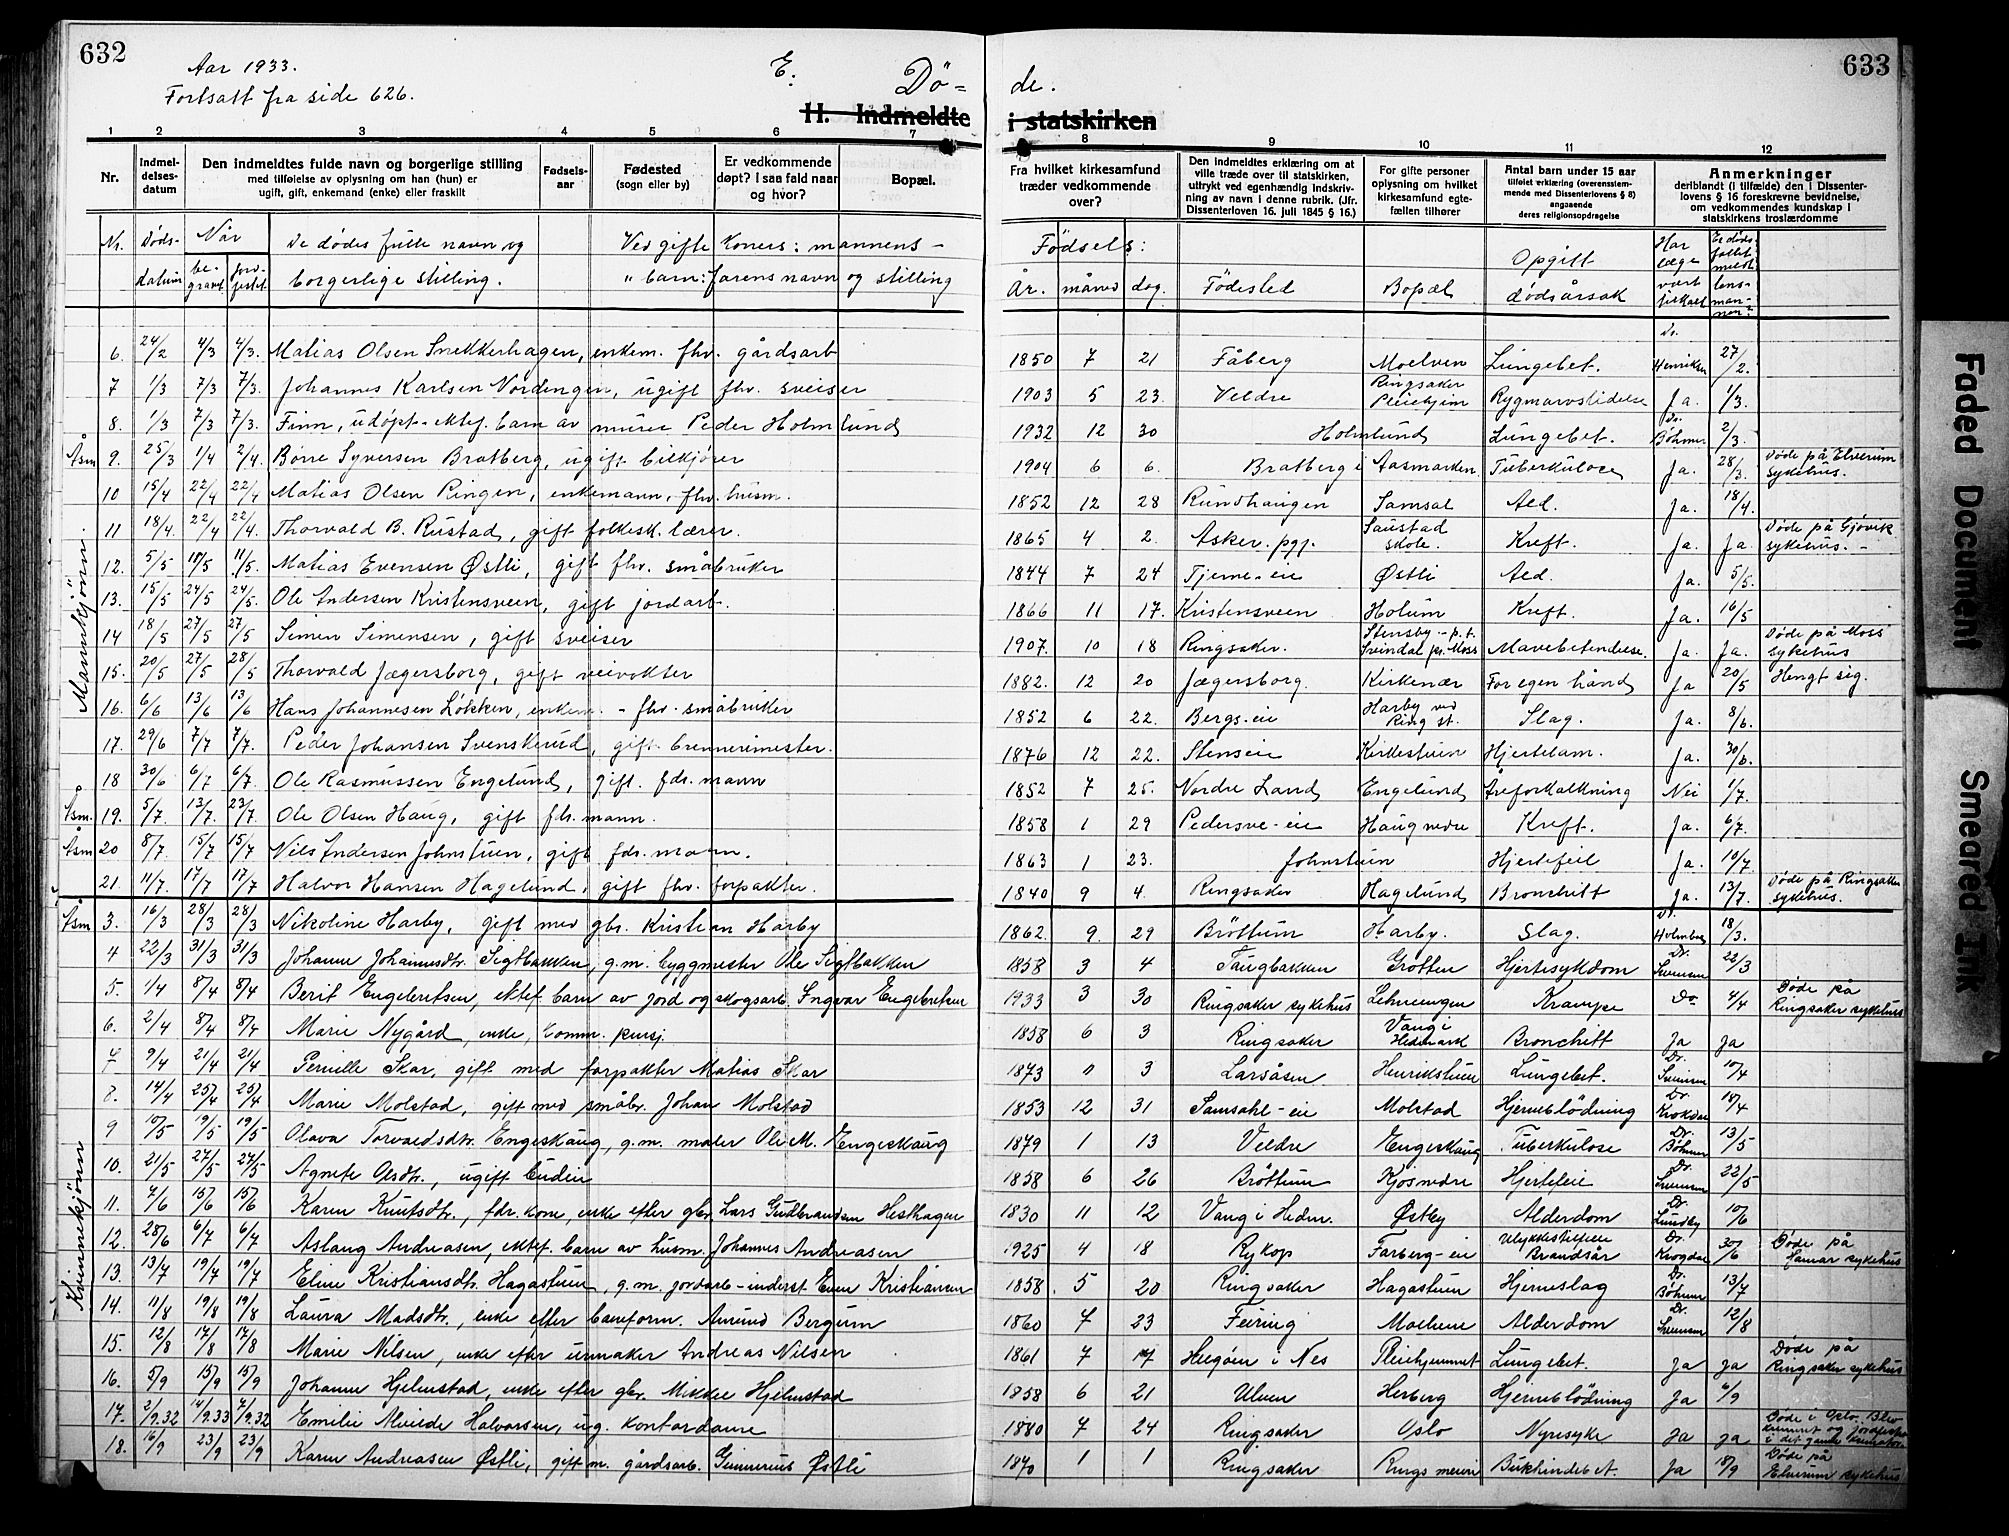 632
Aar 1933.
Fortsatt fra side 626.
E.
Dö=
H. Indmeldte
1 2 3 4 5 6 7
Nr.
Indmel-
delses-
datum
Den indmeldtes fulde navn og borgerlige stilling
med tilføielse av oplysning om han (hun) er
ugift, gift, enkemand (enke) eller fraskilt
Fødsels-
aar
Fødested
(sogn eller by)
Er vedkommende
døpt? I saa fald naar
og hvor?
Bopæl.
Nr. Døds- Når De dødes fulle navn og Ved gifte koners: mannens -
datum be- jord- borgerlige stilling. " barn: farens navn og stilling
gravet festet
Mannkjönn.
6. 24/2 4/3 4/3. Matias Olsen Snekkerhagen, enkem. fhv. gårdsarb
7 1/3 7/3 7/3. Johannes Karlsen Nordengen, ugift fhv. sveiser
8. 1/3 7/3 7/3. Finn, udøpt ektef. barn av murer Peder Holmlund
Åsm 9. 25/3 1/4 2/4. Børre Syversen Bratberg, ugift bilkjører
10 15/4 22/4 22/4 Matias Olsen Ringen, enkemann, fhv. husm.
11 18/4. 22/4 22/4. Thorvald B. Rustad, gift folkesk. lærer.
12. 5/5 11/5 11/5. Matias Evensen Østli, gift fhv. småbruker
13. 15/5 24/5 24/5. Ole Andersen Kristensveen, gift jordarb.
14 18/5 27/5 27/5 Simen Simensen, gift sveiser
15. 20/5 27/5 28/5 Thorvald Jægersborg, gift veivokter
16. 6/6 13/6 13/6 Hans Johannesen Løkken, enkem. - fhv. småbruker
17. 29/6 7/7 7/7. Peder Johansen Svenskerud, gift brennerimester.
18 30/6 6/7 6/7. Ole Rasmussen Engelund, gift. fdr. mann
Åsm. 19. 5/7. 13/7. 23/7. Ole Olsen Haug, gift fdr. mann.
Åsm 20 8/7 15/7 15/7 Nils Andersen Johnstuen, gift fdr. mann.
21. 11/7. 17/7 17/7 Halvor Hansen Hagelund, gift fhv. forpakter.
Kvinnekjönn
Åsm 3. 16/3 28/3 28/3 Nikoline Harby, gift med gbr. Kristian Harby
4 22/3 31/3 31/3 Johanne Johannesdtr. Sigtbakken, g.m. byggmester Ole Sigtbakken
5. 1/4 8/4 8/4 Berit Engebretsen, ektef. barn av jord og skogsarb. Ingvar Engebretsen
6. 2/4 8/4 8/4 Marie Nygård, enke, komm. pensj.
7 9/4 21/4 21/4 Pernille Skar, gift med forpakter Matias Skar
8. 14/4 25/4 25/4 Marie Molstad, gift med småbr. Johan Molstad
9 10/5 19/5 19/5 Olava Torvaldsdtr. Engeskaug, g.m. maler Ole M. Engeskaug
10. 21/5 27/5 27/5 Agnete Olsdtr., ugift budeie
11. 7/6 15/6 15/6 Karen Knutsdtr., fdr. kone, enke efter gbr. Lars Gudbrandsen Hesthagen
12. 28/6 6/7 6/7 Aslaug Andreasen, ektef. barn av husm. Johannes Andreasen
13. 13/7 19/7 19/7 Eline Kristiansdtr. Hagastuen, g.m. jordarb-inderst Even Kristiansen
14. 11/8 19/8 19/8 Laura Madsdtr., enke efter baneform. Amund Bergum
15. 12/8 17/8 17/8 Marie Nilsen, enke efter urmaker Andreas Nilsen
16. 5/9 15/9 15/9 Johanne Hjelmstad, enke efter gbr. Mikkel Hjelmstad
17. 2/9.32 14/9.33 7/9.32 Emilie Alvilde Halvorsen, ug. kontordame
18. 16/9 23/9 23/9 Karen Andreasen Østli, gift m. gårdsarb. Gunnerius Østli
633
de.
i statskirken
8 9 10 11 12
Fra hvilket kirkesamfund
træder vedkommende
over?
Den indmeldtes erklæring om at
ville træde over til statskirken,
uttrykt ved egenhændig indskriv-
ning av navn i denne rubrik. (Jfr.
Dissenterloven 16. juli 1845 § 16.)
For gifte personer
oplysning om hvilket
kirkesamfund egte-
fællen tilhører
Antal barn under 15 aar
tilføiet erklæring (overensstem-
mende med Dissenterlovens § 8)
angaaende
deres religionsopdragelse
Anmerkninger
deriblandt (i tilfælde) den i Dissenter-
lovens § 16 foreskrevne bevidnelse,
om vedkommendes kundskap i
statskirkens troslærdomme
Fødsels:
År. måned dag. Fødested Bopæl Opgitt dødsårsak
Har læge vært tilkalt
Er døds-fallet meldt lens-man-nen?
1850 7 21 Fåberg Moelven Lungebet. Dr. Henriksen 27/2.
1903 5 23. Veldre Ringsaker Pleiehjem Rygmarvslidelse Ja. 1/3.
1932 12 30 Holmlund Lungebet. Dr. Böhmer 2/3.
1904 6 6. Bratberg i Aasmarken. Tuberkulose Ja. 28/3. Døde på Elverum sykehus.
1852 12 28 Rundhaugen Samsal Ald. Ja. 18/4.
1865 4 2. Asker. pgj. Saustad skole. Kreft. Ja. Ja. Døde på Gjøvik sykehus. -
1844 7 24 Tjerne-eie Østli Ald. Ja. 5/5.
1866 11 17. Kristensveen Holum Kreft. Ja. 16/5
1907. 10 18 Ringsaker. Stensby - p.t. Svindal pr. Moss Mavebetendelse. Ja. Ja. Døde på Moss sykehus
1882. 12 20 Jægersborg. Kirkenær For egen hånd Ja 20/5 Hengt sig.
1852 6 22. Bergs-eie Harby ved Ring st. Slag. Ja. 8/6.
1876 12 22. Stenseie Kirkestuen Hjertelam. Ja. 30/6.
1852 7 25. Nordre Land Engelund Åreforkalkning Nei 1/7.
1858 1 29 Pedersve-eie Haug nedre Kreft. Ja. 6/7.
1863 1 23. Johnstuen Hjertefeil Ja. 10/7.
1840 9 4. Ringsaker Hagelund Bronchitt Ja. 13/7. Døde på Ringsaker sykehus.
1862. 9. 29 Bröttum Harby. Slag. Dr. Holmboe 18/3.
1858 3 4 Taugbakken Grotten Hjertesykdom Dr. Svensen 22/3
1933 3 30 Ringsaker sykehus Lehnengen Krampe Do 4/4 Døde på Ringsaker sykehus
1858 6 3 Ringsaker Vang i Hedmark Bronchitt Ja Ja
1873 3 Larsåsen Henrikstuen Lungebet. Dr. Svensen 10/4
1853 12 31 Samsahl-eie Molstad Hjerneblödning Dr. Krokdal 18/4
1879 1 13 Veldre Engeskaug Tuberkulose Dr. Böhmer 13/5
1858 6 26 Bröttum Kjos nedre Hjertefeil Dr. Svensen 22/5
1830 11 12 Vang i Hedm. Østby Alderdom Dr. Lundby 10/6
1925 4 18 Rykop Farberg-eie Ulykkestilfelle Brandsår Dr. Krogdal 30/6 Døde på Hamar sykehus
1858. 5 20 Ringsaker Hagastuen Hjerneslag Dr. Böhmer 13/7
1860 7 23 Feiring Moelven Alderdom Dr. Svensen 12/8
1861 7 17 Helgøen i Nes Pleiehjemmet Lungebet. Ja Ja Døde på Ringsaker sykehus
1858 6 21 Ulven Herberg Hjerneblödning Ja 6/9
1880 7 24 Ringsaker Oslo Nyresyke Ja Ja Døde i Oslo. Blev kremert og jordfestet i det gamle kremator.
1870 1 1 Ringsaker Rings meieri Bukhindebet. Ja 18/9 Døde på Elverum sykehus
Faded Document
Smeared Ink